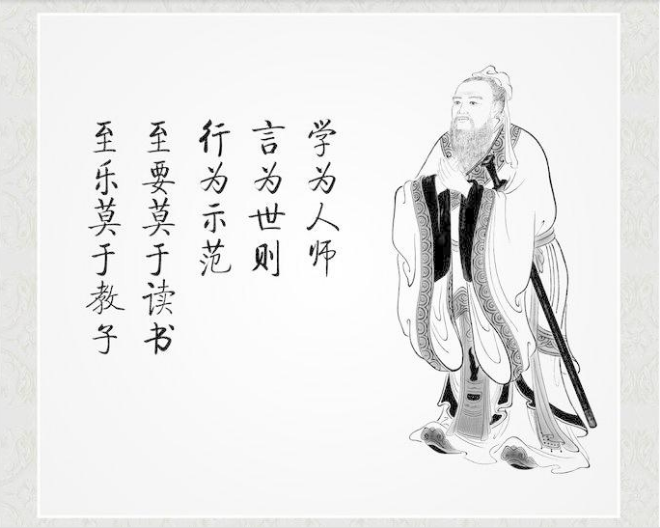 学为人师
言为世则
行为示范
至要莫于读书
至乐莫于教子